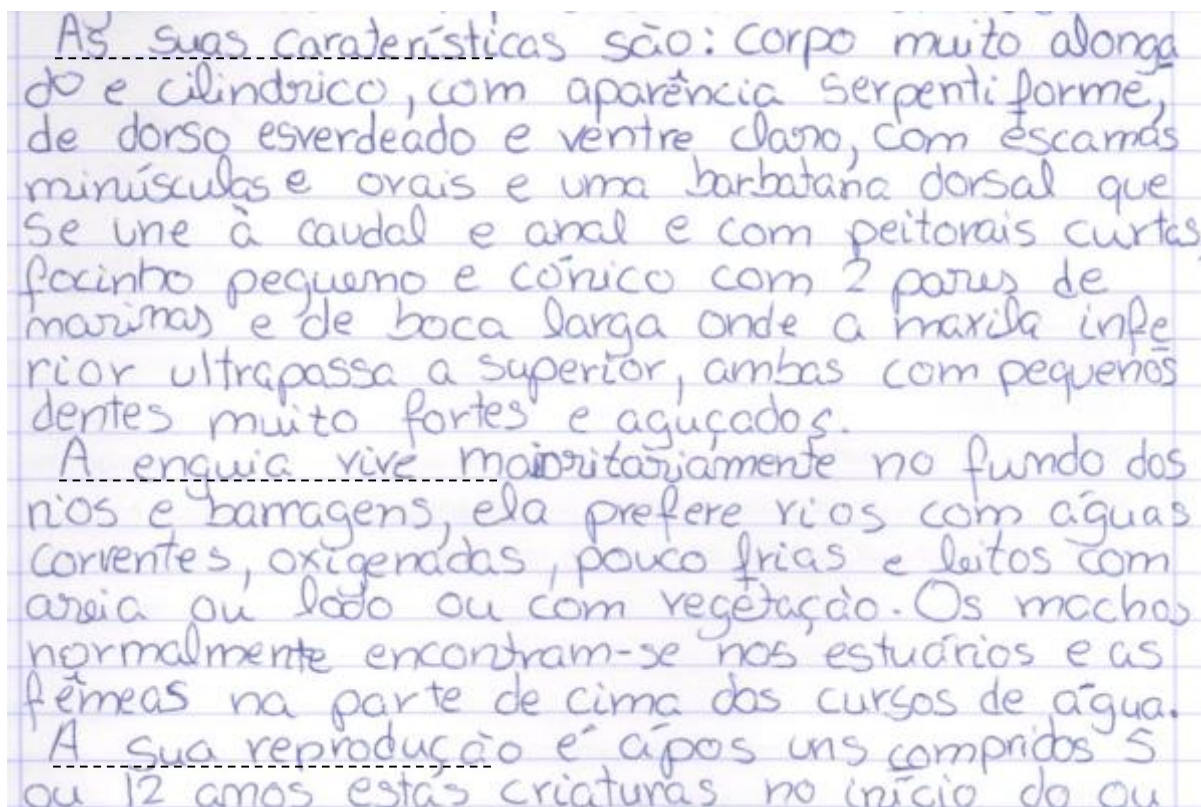 As suas caraterísticas são: corpo muito alonga
do e cilindrico, com aparência serpentiforme,
de dorso esverdeado e ventre claro, com escamas
minúsculas e ovais e uma barbatana dorsal que
se une à caudal e anal e com peitorais curtas,
focinho pequeno e cónico com 2 pares de
narinas e de boca larga onde a maxila infe
rior ultrapassa a superior, ambas com pequenos
dentes muito fortes e aguçados.
A enguia vive maioritariamente no fundo dos
rios e barragens, ela prefere rios com águas
correntes, oxigenadas, pouco frias e leitos com
areia ou lodo ou com vegetação. Os machos
normalmente encontram-se nos estuários e as
fêmeas na parte de cima dos cursos de água.
A sua reprodução é ápos uns compridos 5
ou 12 anos estas criaturas no início do ou